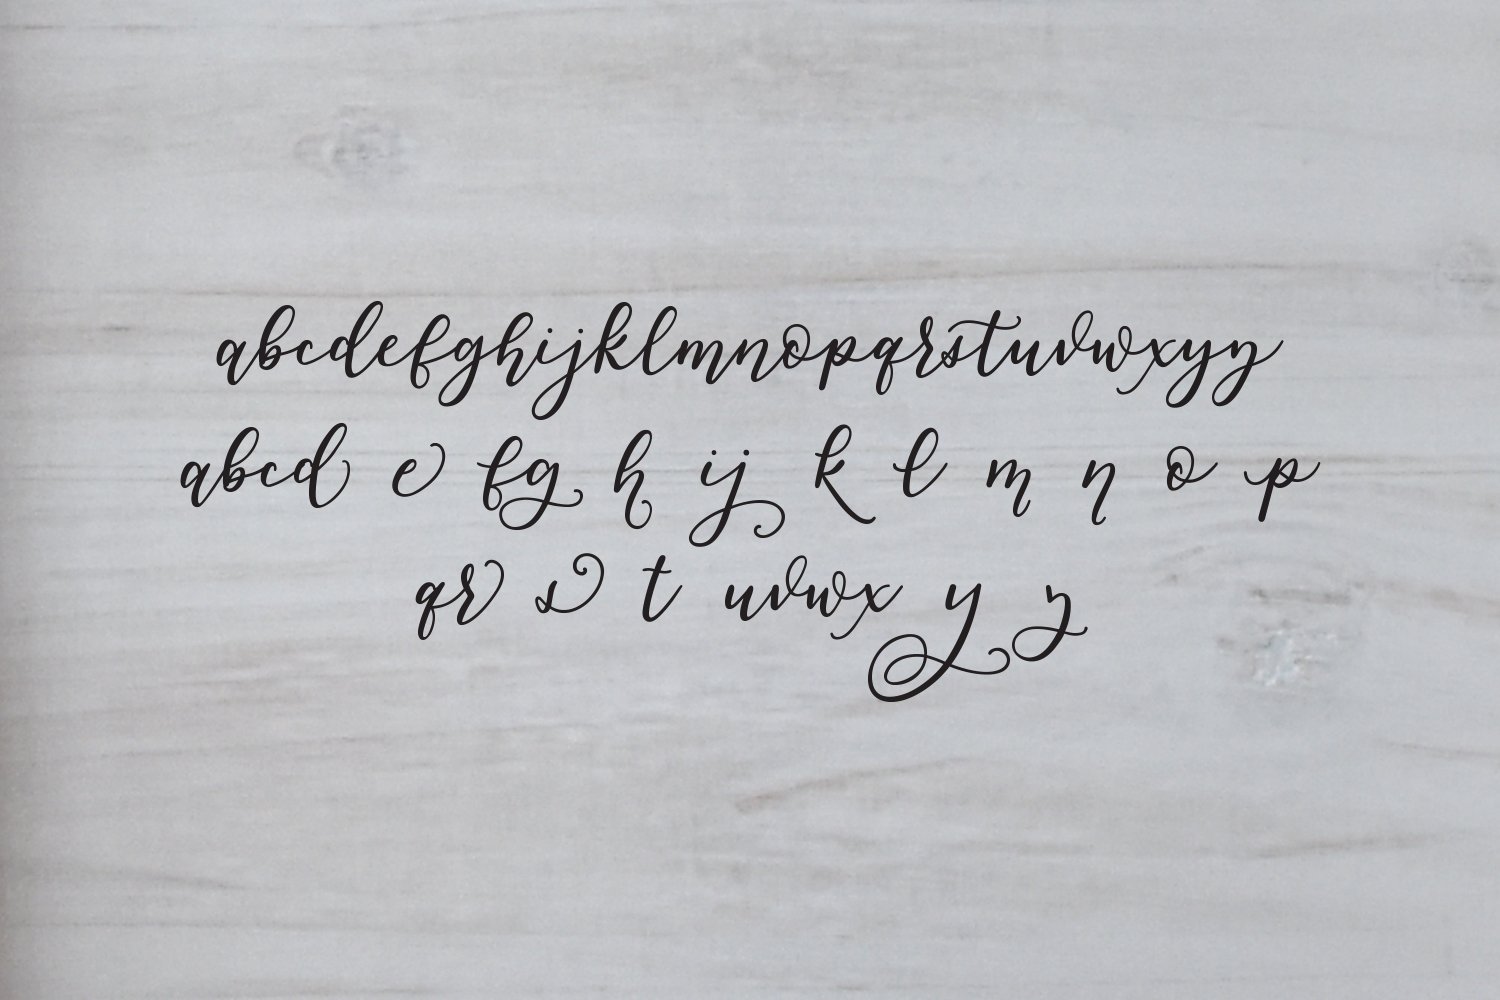 abcdefghijklmnopqrstuvwxyz
abcd e fg h ij k l m n o p
qr s t uvwx y z